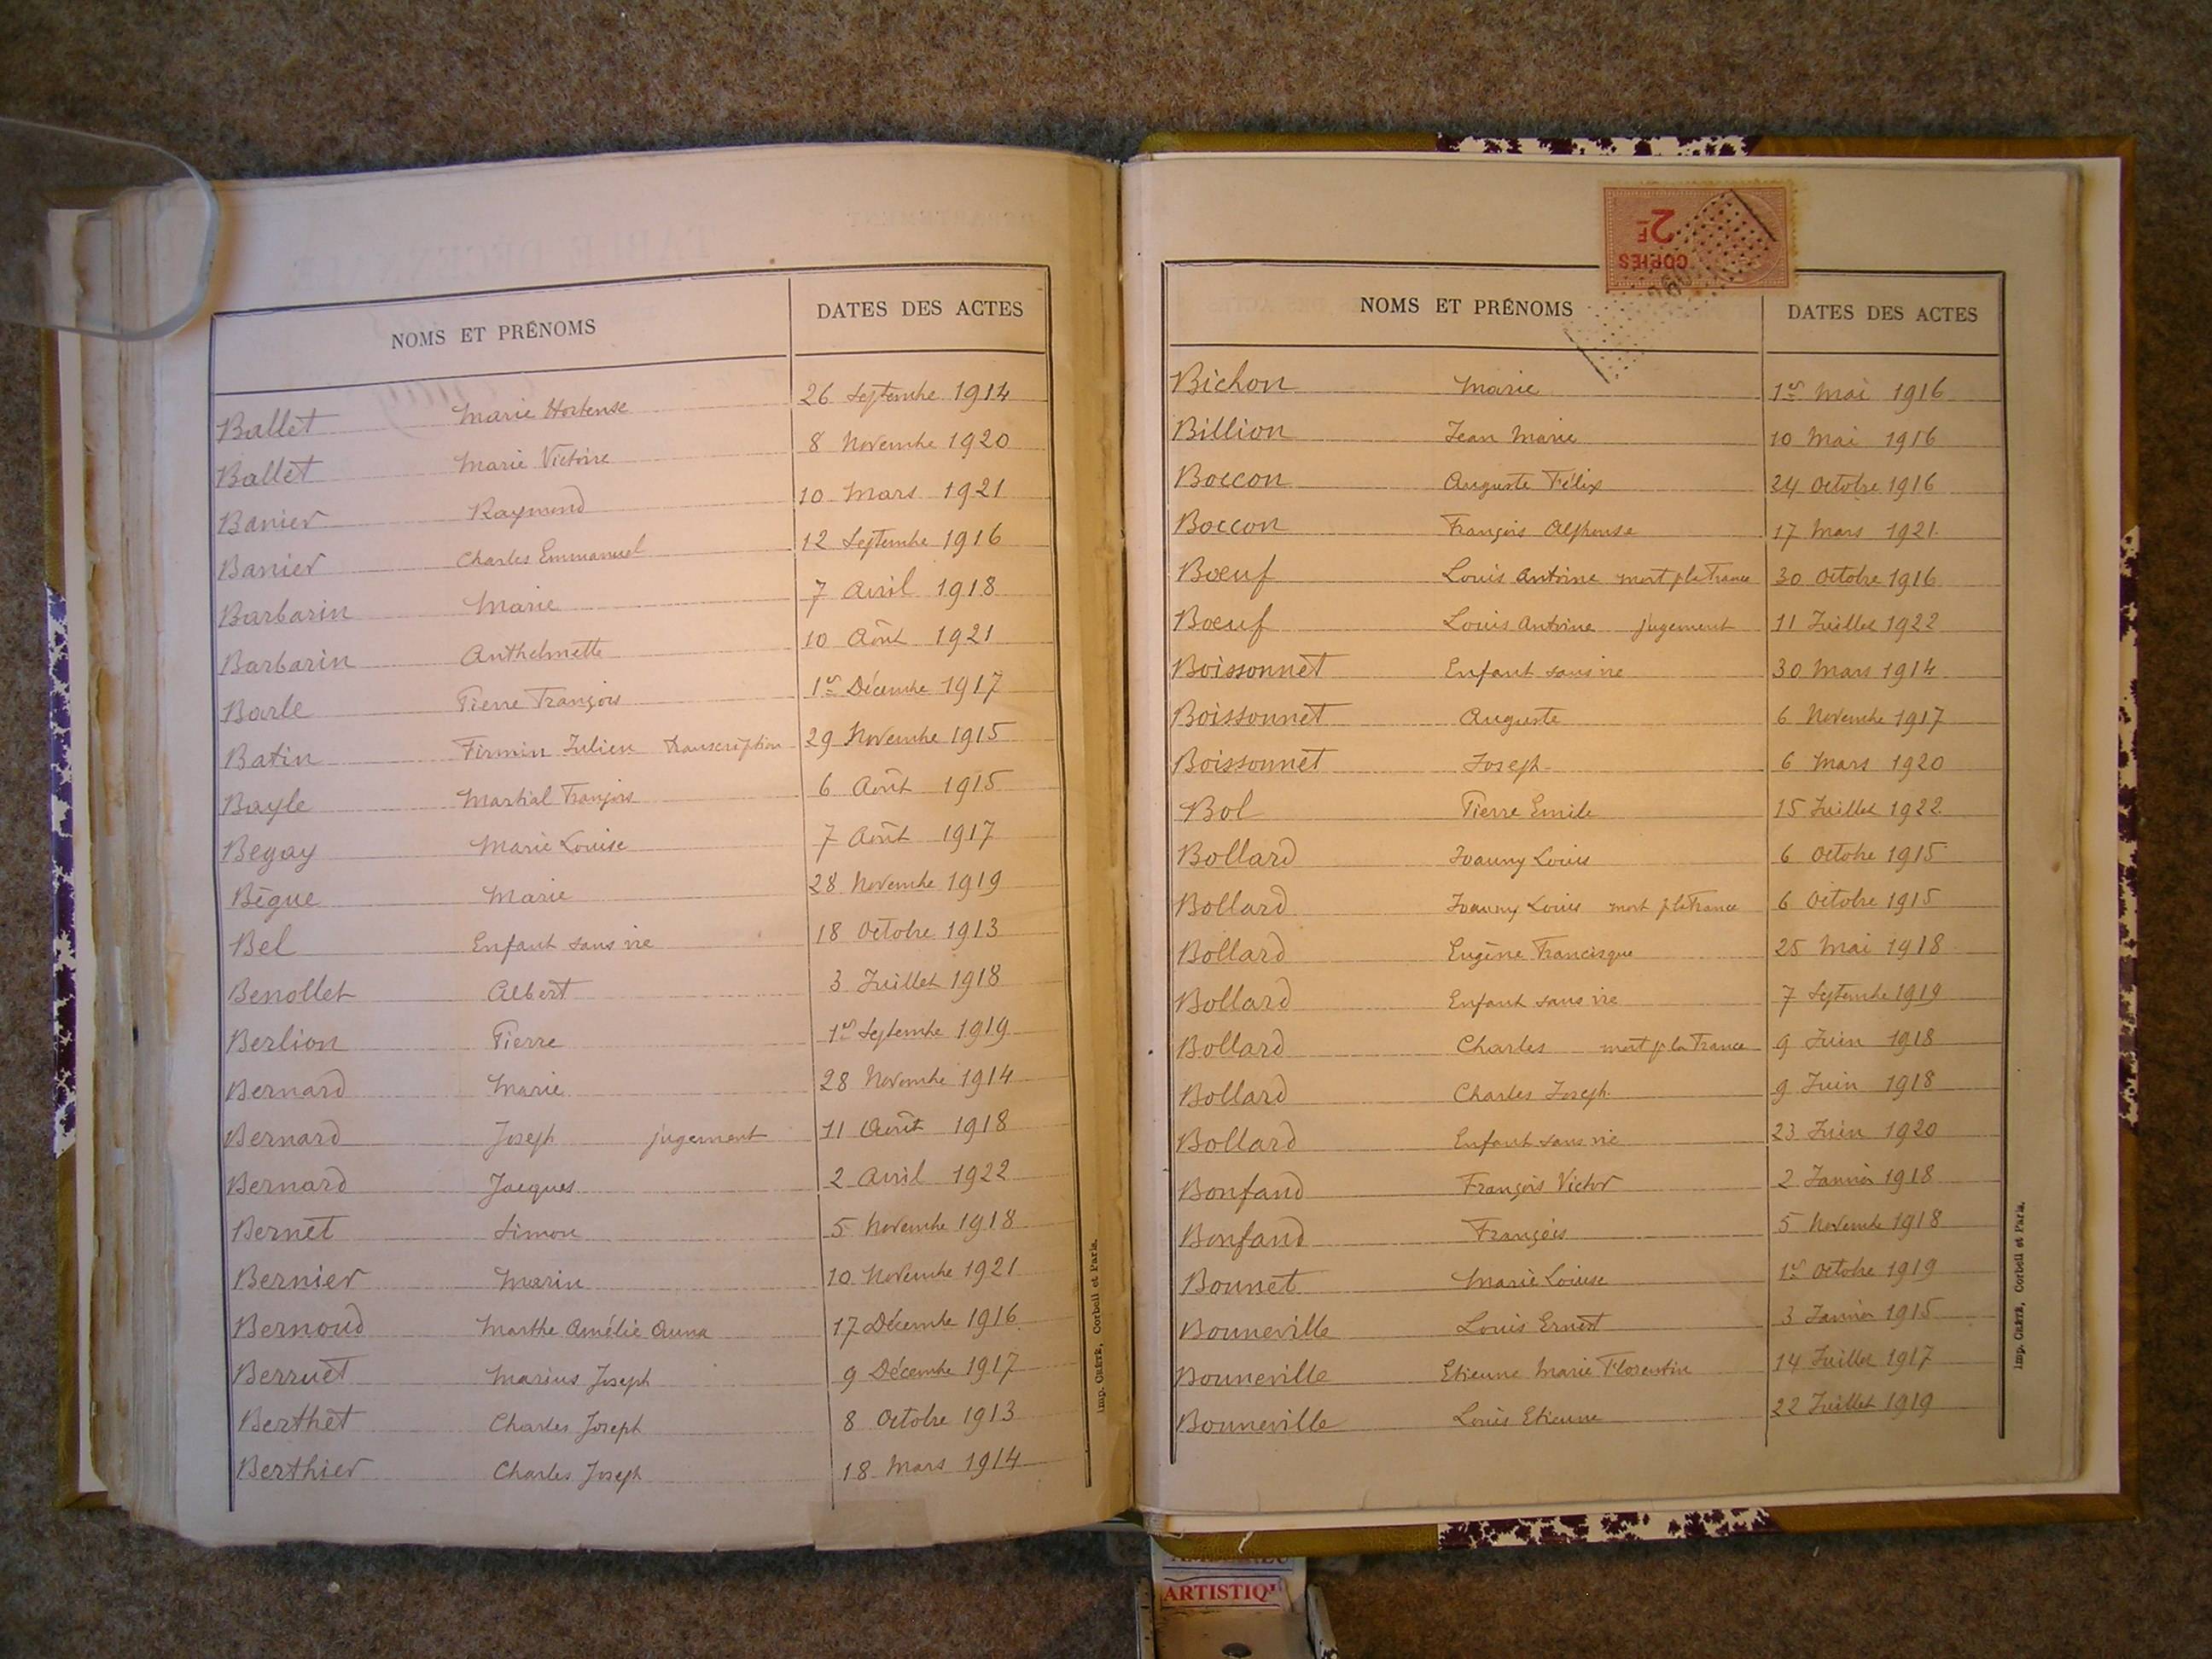 NOMS ET PRÉNOMS DATES DES ACTES
Ballet Marie Hortense 26 Septembre 1914
Ballet Marie Victoire 8 Novembre 1920
Banier Raymond 10 Mars 1921
Banier Charles Emmanuel 12 Septembre 1916
Barbarin Marie 7 Avril 1918
Barbarin Anthelmette 10 Août 1921
Barle Pierre François 1er Décembre 1917
Batin Firmin Julien transcription 29 Novembre 1915
Bayle Martial François 6 Août 1915
Begay Marie Louise 7 Août 1917
Bègue Marie 28 Novembre 1919
Bel Enfant sans vie 18 Octobre 1913
Benollet Albert 3 Juillet 1918
Berlion Pierre 1er Septembre 1919
Bernard Marie 28 Novembre 1914
Bernard Joseph jugement 11 Août 1918
Bernard Jacques 2 Avril 1922
Bernet Simon 5 Novembre 1918
Bernier Marin 10 Novembre 1921
Bernoud Marthe Amélie Anna 17 Décembre 1916
Berruet Marius Joseph 9 Décembre 1917
Berthet Charles Joseph 8 Octobre 1913
Berthier Charles Joseph 18 Mars 1914
Imp. CRÉTÉ, Corbeil et Paris.
COPIES
2F
NOMS ET PRÉNOMS DATES DES ACTES
Bichon Marie 1er Mai 1916
Billion Jean Marie 10 Mai 1916
Boccon Auguste Félix 24 Octobre 1916
Boccon François Alphonse 17 Mars 1921
Bœuf Louis Antoine mort p la France 30 Octobre 1916
Bœuf Louis Antoine jugement 11 Juillet 1922
Boissonnet Enfant sans vie 30 Mars 1914
Boissonnet Auguste 6 Novembre 1917
Boissonnet Joseph 6 Mars 1920
Bol Pierre Emile 15 Juillet 1922
Bollard Joanny Louis 6 Octobre 1915
Bollard Joanny Louis mort p la France 6 Octobre 1915
Bollard Eugène Francisque 25 Mai 1918
Bollard Enfant sans vie 7 Septembre 1919
Bollard Charles mort p la France 9 Juin 1918
Bollard Charles Joseph 9 Juin 1918
Bollard Enfant sans vie 23 Juin 1920
Bonfand François Victor 2 Janvier 1918
Bonfand François 5 Novembre 1918
Bonnet Marie Louise 1er Octobre 1919
Bonneville Louis Ernest 3 Janvier 1915
Bonneville Etienne Marie Florentin 14 Juillet 1917
Bonneville Louis Etienne 22 Juillet 1919
Imp. CRÉTÉ, Corbeil et Paris.
ARTISTIQ